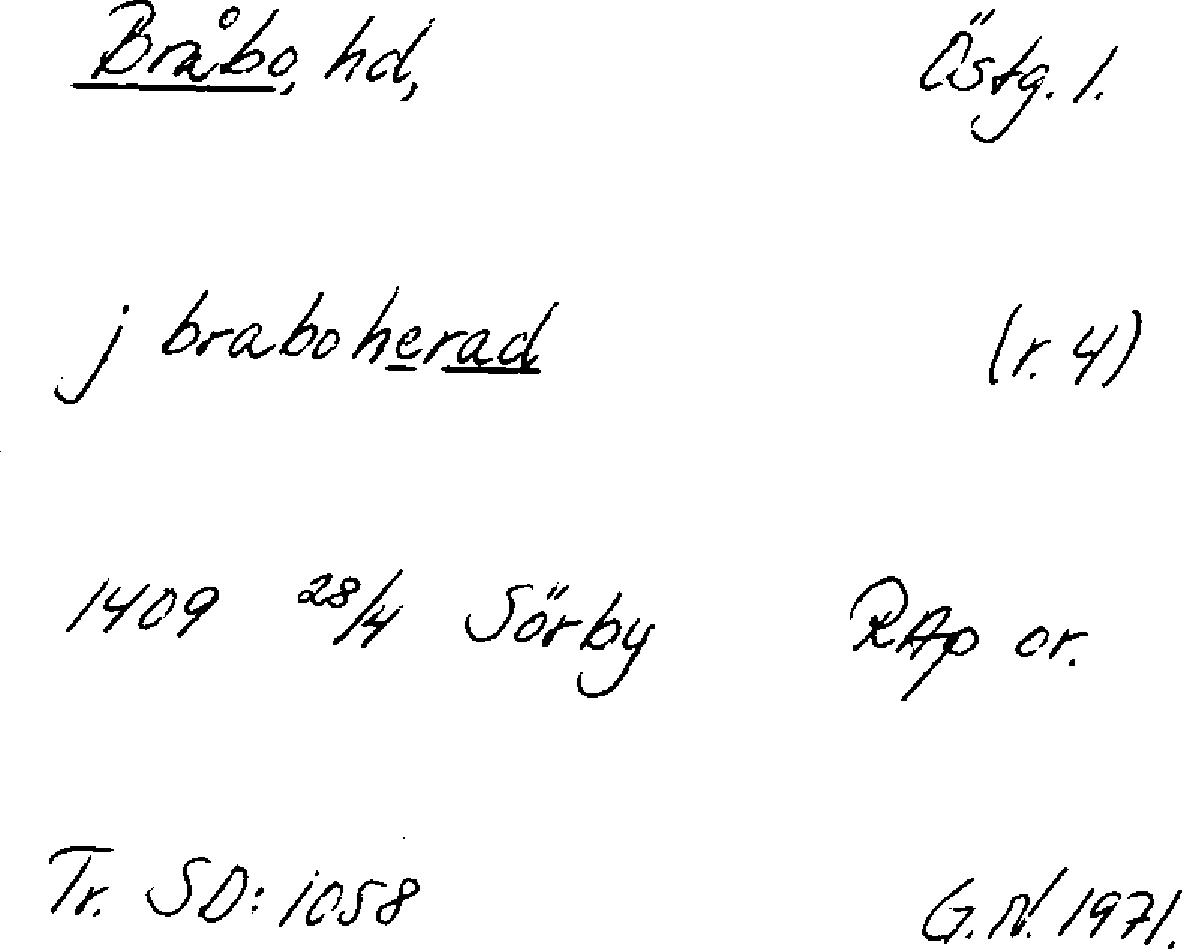 Bråbo, hd, Östg. l.
j braboherad (r. 4)
1409 28/4 Sörby RAp or.
Tr. SD: 1058 G.N. 1971.